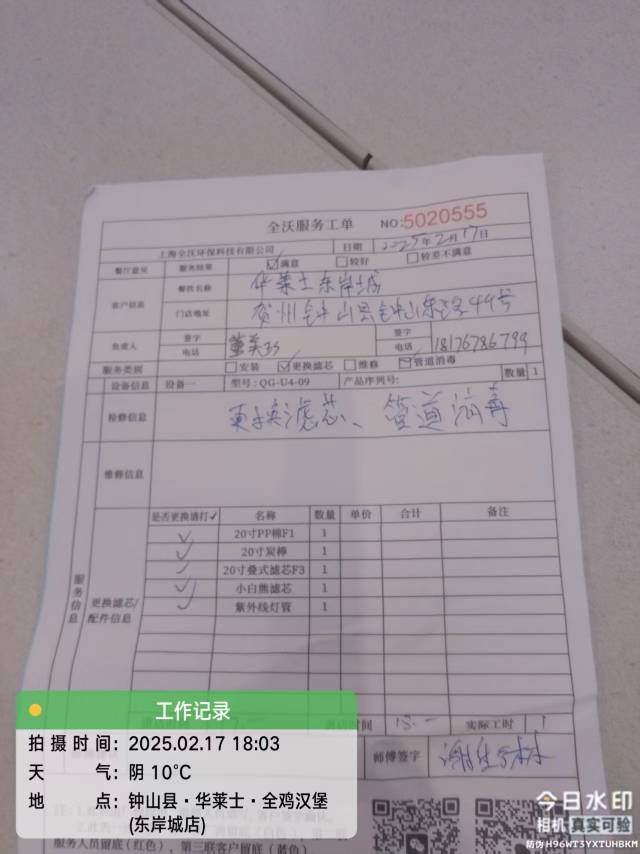 全沃服务工单 NO:5020555
上海全沃环保科技有限公司 日期 2025年2月17日
餐厅意见 服务结果 ☑满意 □较好 □较差不满意
客户信息 餐饮名称 华莱士东岸城
门店地址 贺州钟山县钟山东路49号
负责人 签字 签字
电话 电话 18176786799
服务类别 □安装 ☑更换滤芯 □维修 ☑管道消毒
设备信息 设备一 型号:QG-U4-09 产品序列号: 数量 1
检修信息 更换滤芯、管道消毒
维修信息
服务信息
更换滤芯/配件信息
是否更换请打✓ 名称 数量 单价 合计 备注
✓ 20寸PP棉F1 1
✓ 20寸炭棒 1
✓ 20寸叠式滤芯F3 1
✓ 小白熊滤芯 1
✓ 紫外线灯管 1
实际工时 1
师傅签字
服务人员留底(红色)、第三联客户留底(蓝色)
工作记录
拍摄时间: 2025.02.17 18:03
天气: 阴 10℃
地点: 钟山县·华莱士·全鸡汉堡
(东岸城店)
今日水印
相机 真实可验
防伪 H96WT3YXTUHBKM